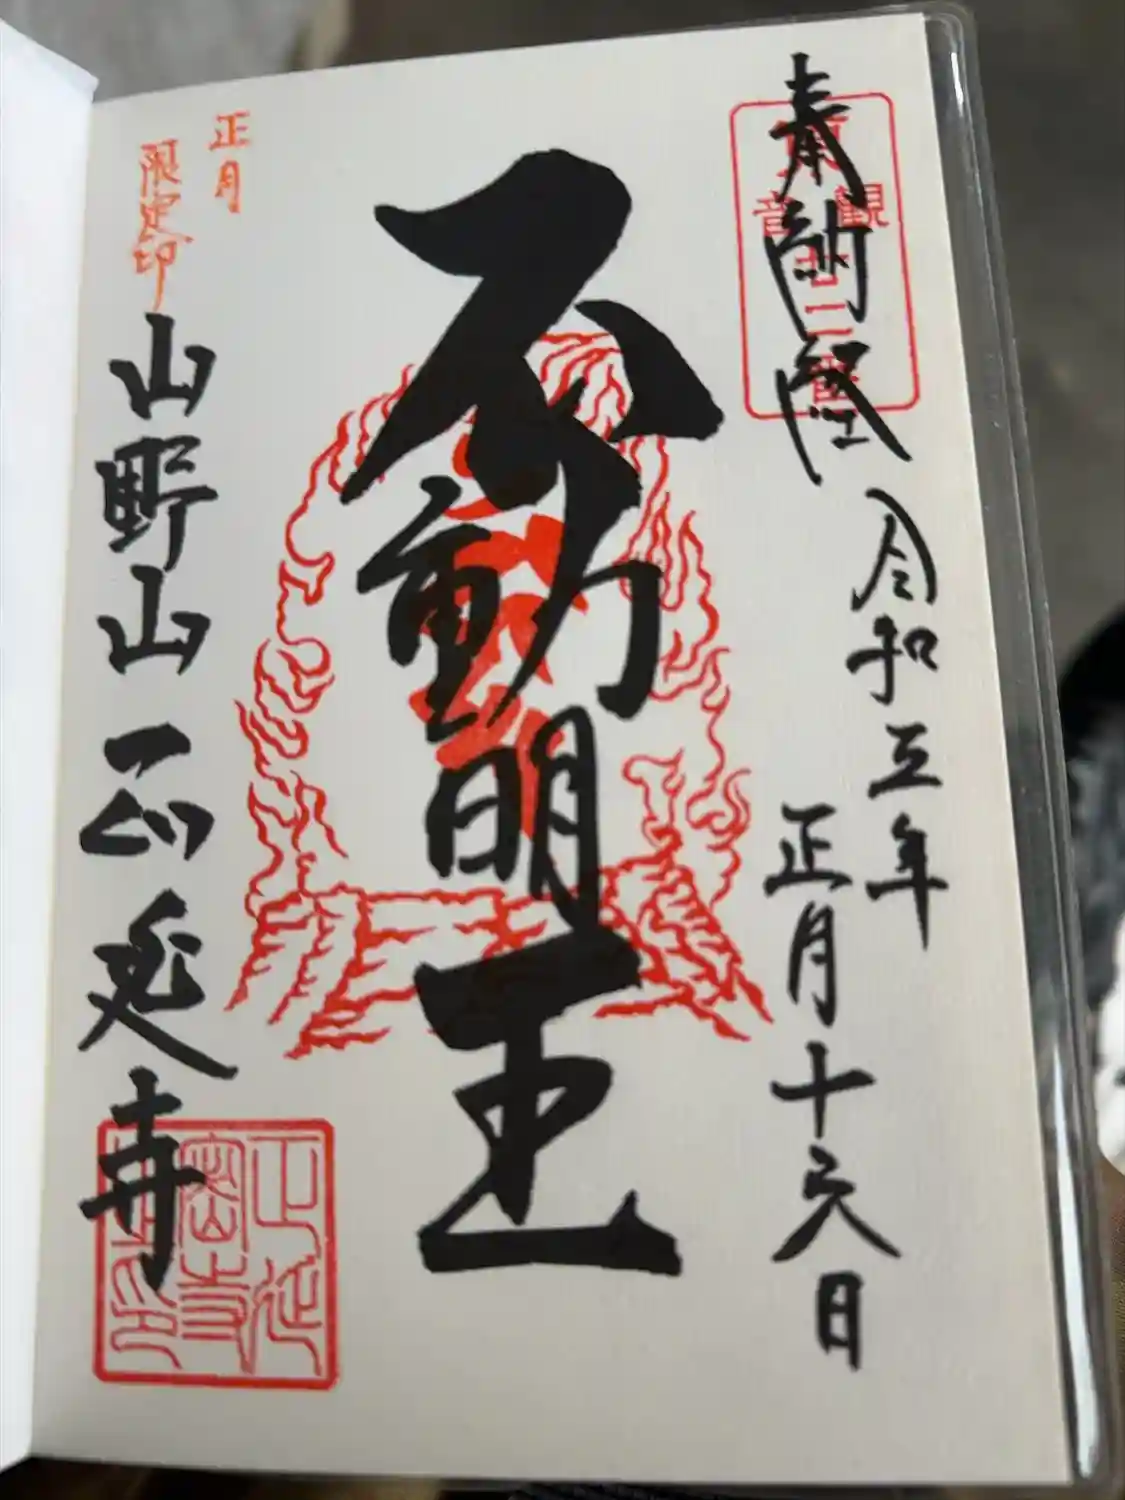 奉納経
令和五年
正月十六日
不動明王
正月
限定印
山野山 正延寺